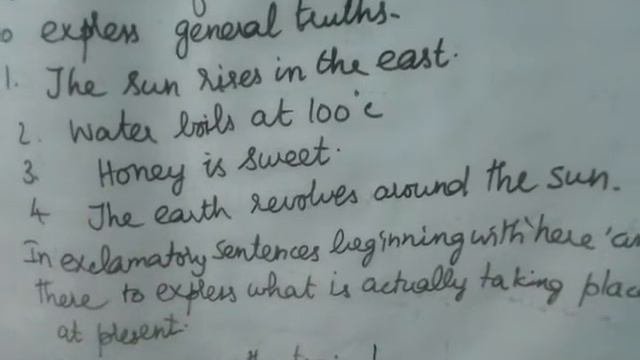 o express general truths.
1. The sun rises in the east.
2. Water boils at 100°c
3. Honey is sweet.
4 The earth revolves around the sun.
In exclamatory sentences beginning with 'here' an
there to express what is actually taking plac
at present.